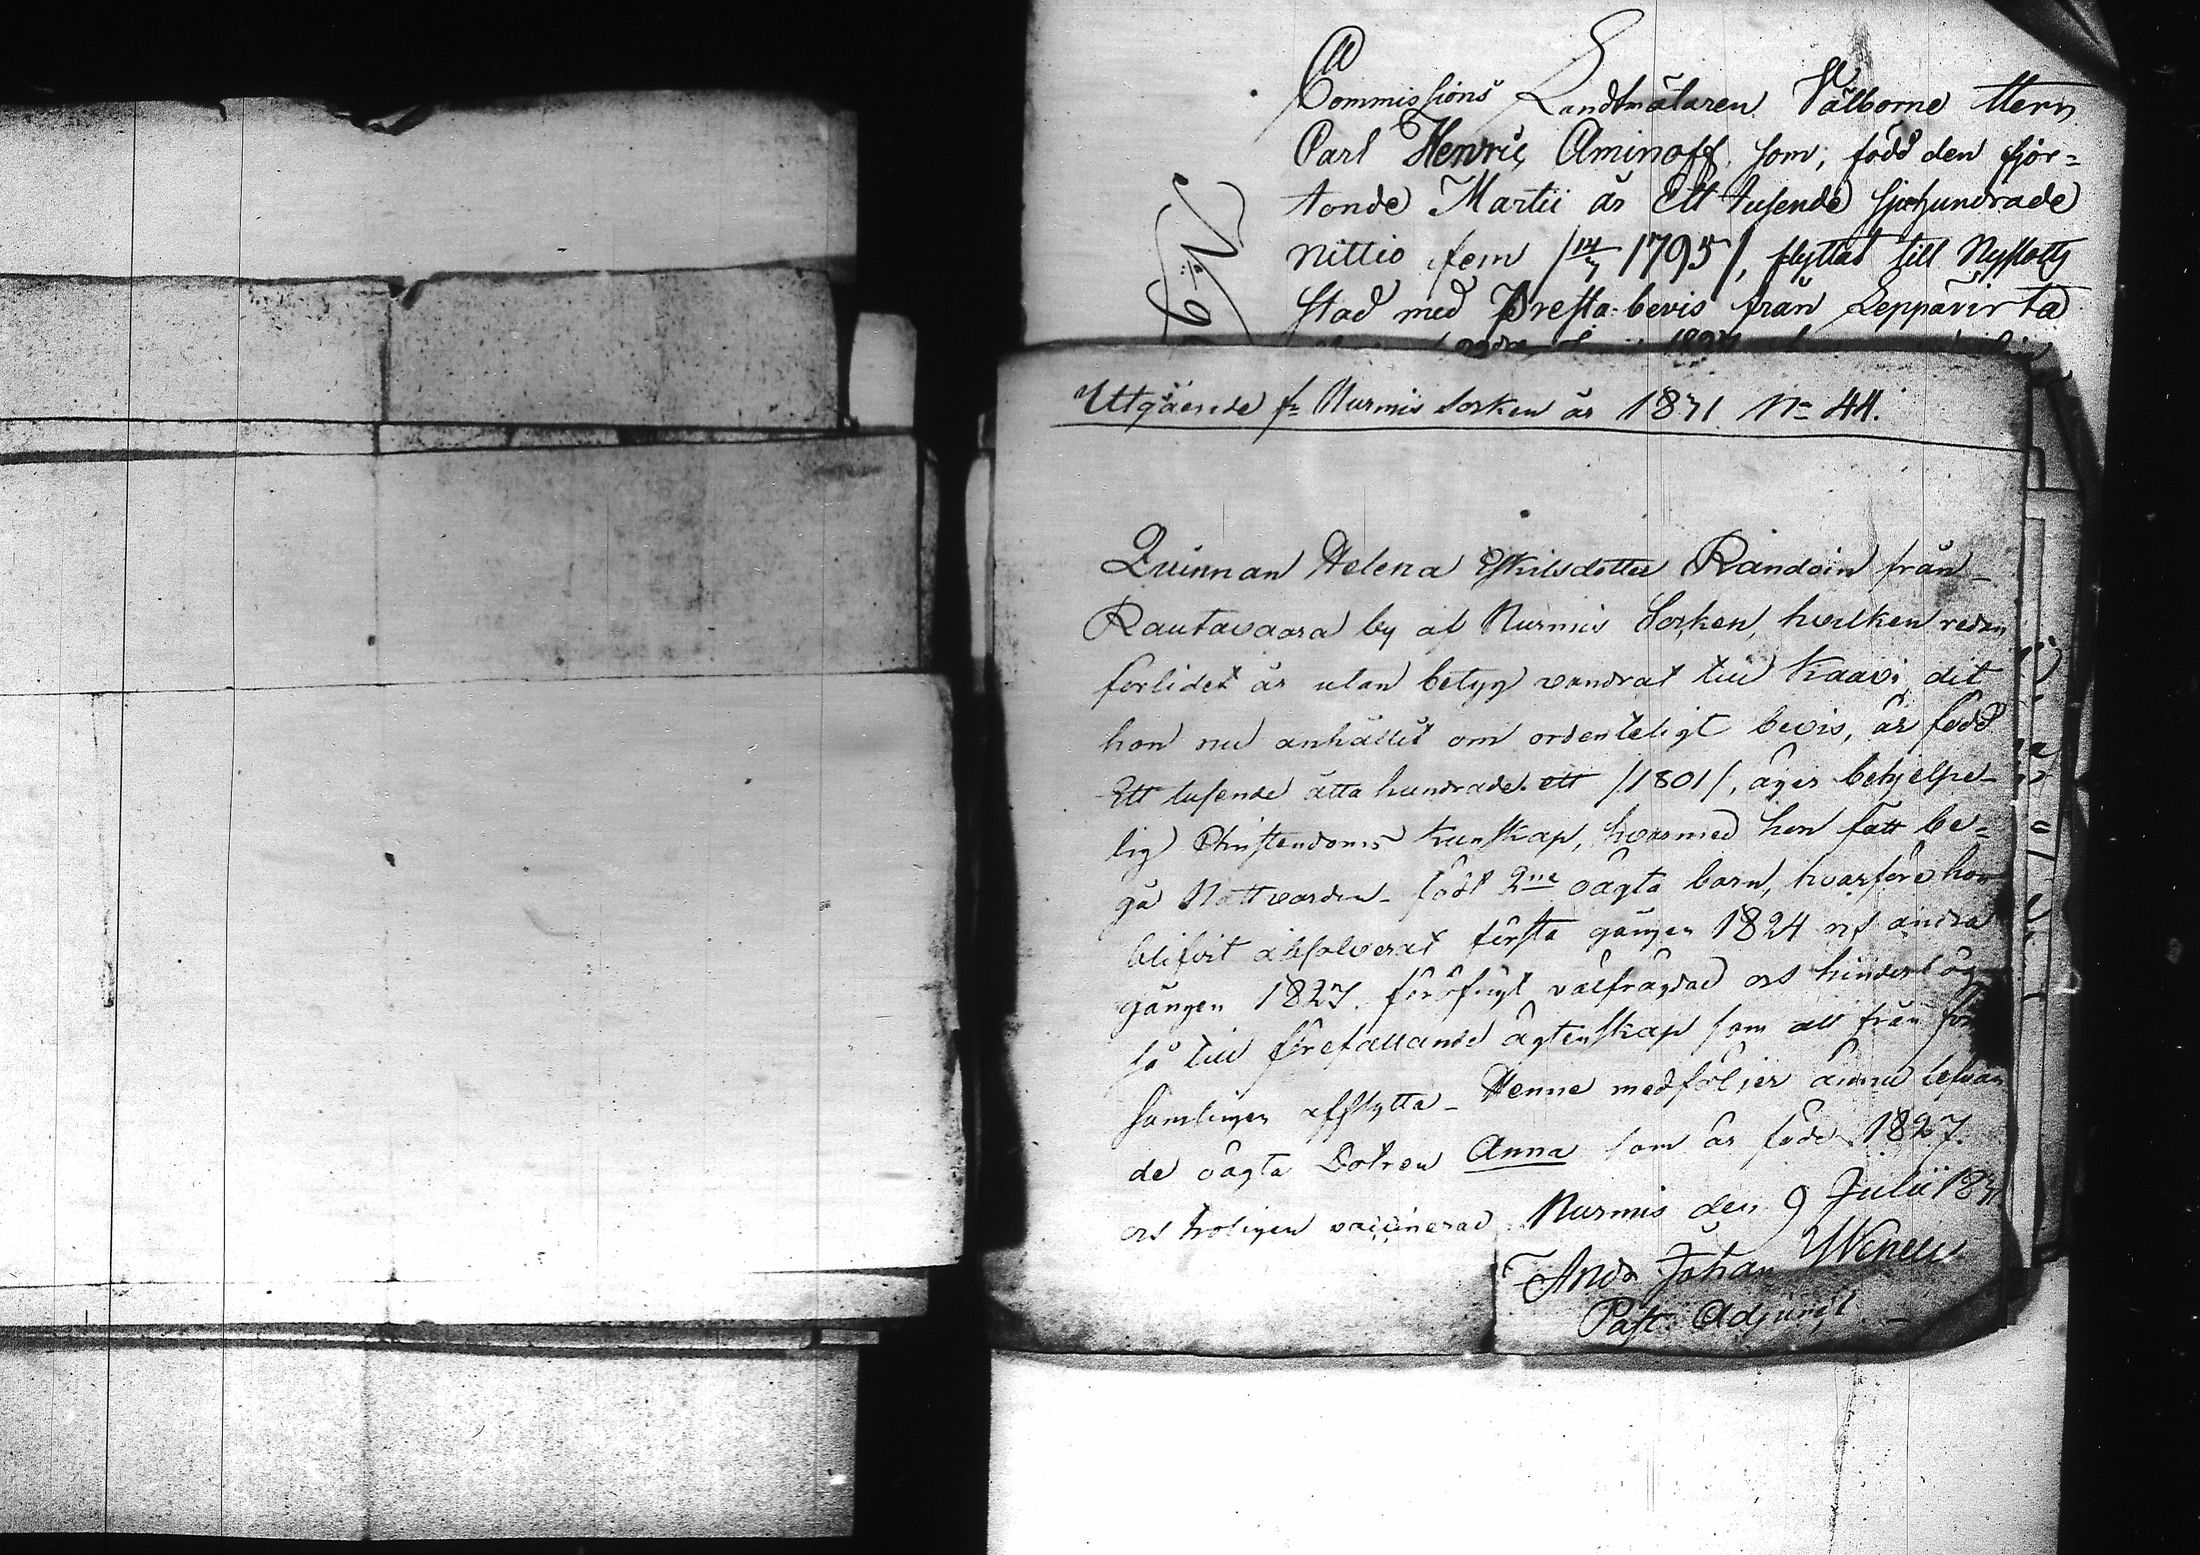 Commissions Landtmätaren Välborne Herr
Carl Henric Aminoff, som, född den fjor=
tonde Martii år Ett tusende sjuhundrade
nittio fem /14/3 1795/, flyttat till Nyslotts
Stad med Presta-bevis från Leppävirta
Utgående fr Nurmis Socken år 1831 No 44.
Qvinnan Helena Eskilsdotter Rändöin från
Rautavaara by af Nurmis Socken, hvilken redan
förlidet år utan betyg vandrat till Kaavi, dit
hon nu anhållit om ordenteligt bevis, är född
Ett tusende åtta hundrade ett /1801/, äger behjelpe-
lig Christendoms kunskap, hvarmed hon fått be=
gå Nattvarden - födt 2ne oägta barn, hvarföre hon
blifvit absolverad första gången 1824 och andra
gången 1827. föröfrigt välfrägdad och hinderlög
så till förefallande ägtenskap som att från för
samlingen afflytta - Henne medföljer ännu lefvan
de oägta Dotren Anna som är född 1827.
och troligen vaccinerad. Nurmis den 9 Julii 1831
Ands Johan Wenell
Past. Adjunct.